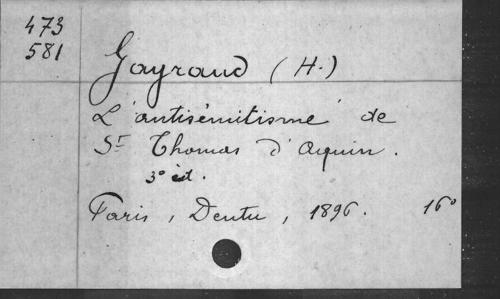 473
581
Gayraud (H.)
L'antisémitisme de
St Thomas d'Aquin.
3e éd.
Paris, Dentu, 1896. 16°